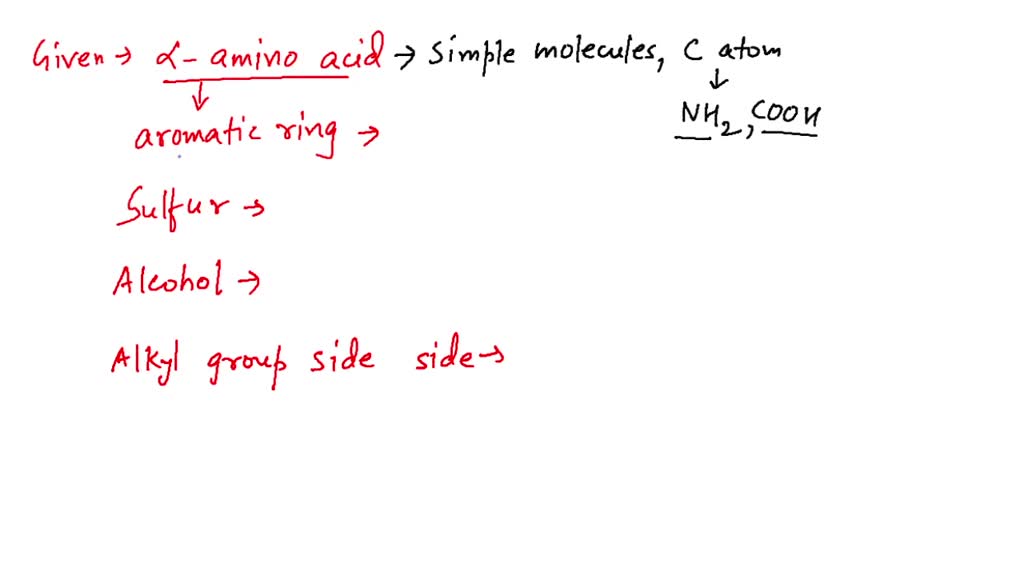 Given → α- amino acid → Simple molecules, C atom
↓ ↓
aromatic ring → NH₂, COOH
Sulfur →
Alcohol →
Alkyl group side side →